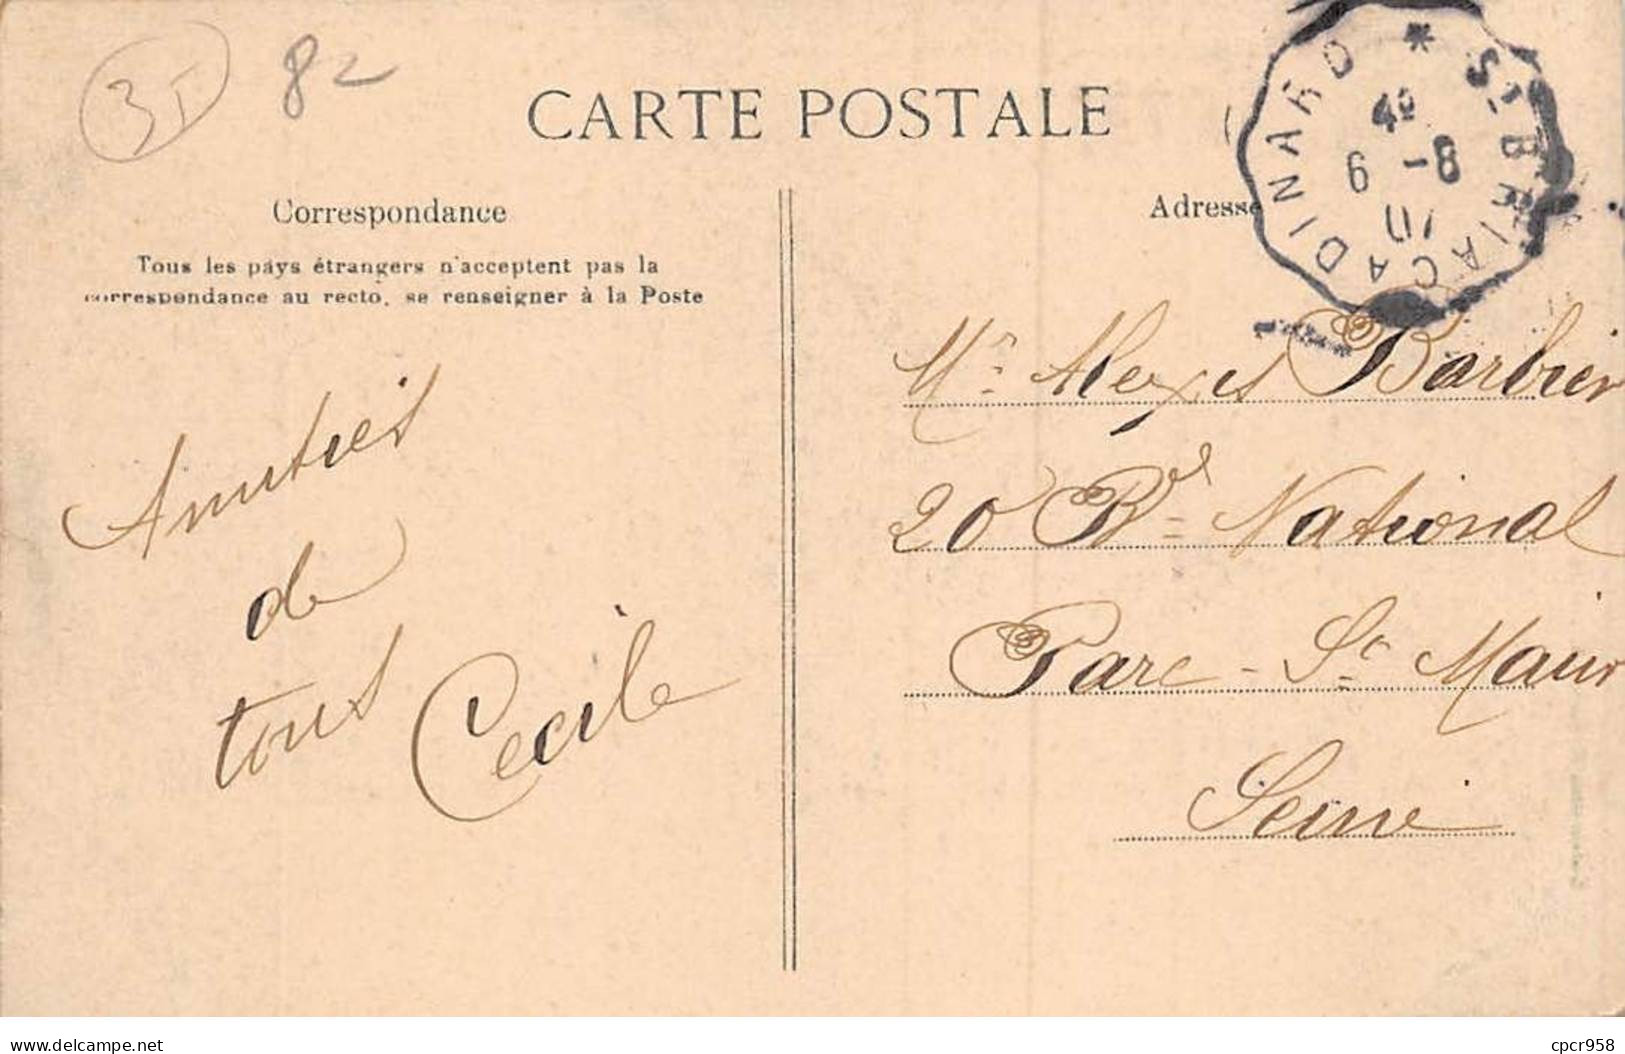 3I 82
CARTE POSTALE
Correspondance
Tous les pays étrangers n'acceptent pas la
correspondance au recto, se renseigner à la Poste
Adresse
ST-BRIAC A DINARD *
4º
6 -8
10
Amitiés
de
tous
Cécile
Mr Alexis Barbier
20 Bd National
Parc - St Maur
Seine
www.delcampe.net
cpcr958